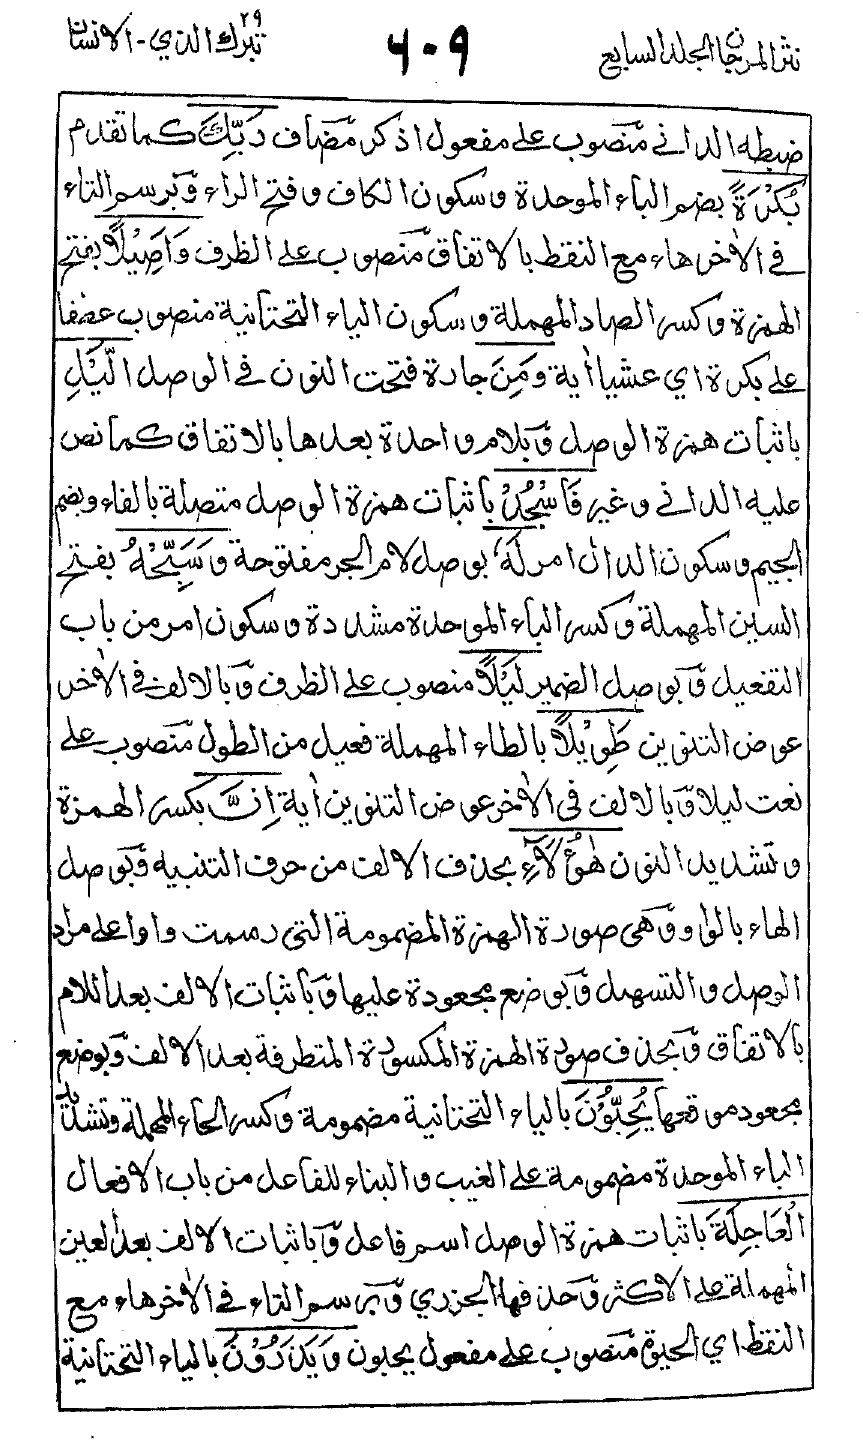 نثر المرجان المجلد السابع
٦٠٩
تبرك الذي ٢٩ - الانسان
ضبطه الداني منصوب على مفعول اذكر مضاف رَبِّكَ كما تقدم
بُكْرَةً بضم الباء الموحدة وسكون الكاف وفتح الراء وبرسم التاء
في الاٰخر هاء مع النقط بالاتفاق منصوب على الظرف وَاَصِيْلًا بفتح
الهمزة وكسر الصاد المهملة وسكون الياء التحتانية منصوب عطفا
على بكرة اي عشيا اٰية وَمِنَ جارة فتحت النون في الوصل الَّيْلِ
باثبات همزة الوصل وبلام واحدة بعدها بالاتفاق كما نص
عليه الداني وغيره فَاسْجُدْ باثبات همزة الوصل متصلة بالفاء وبضم
الجيم وسكون الدال امر لَهٗ بوصل لام الجر مفتوحة وَسَبِّحْهُ بفتح
السين المهملة وكسر الباء الموحدة مشددة وسكون امر من باب
التفعيل وبوصل الضمير لَيْلًا منصوب على الظرف وبالالف في الاٰخر
عوض التنوين طَوِيْلًا بالطاء المهملة فعيل من الطول منصوب على
نعت ليلا وبالالف في الاٰخر عوض التنوين اٰية اِنَّ بكسر الهمزة
وتشديد النون هٰٓؤُلَآءِ بحذف الالف من حرف التنبيه وبوصل
الهاء بالواو وهي صورة الهمزة المضمومة التي رسمت واوا على مراد
الوصل والتسهيل وبوضع مجعودة عليها وباثبات الالف بعد اللام
بالاتفاق وبحذف صورة الهمزة المكسورة المتطرفة بعد الالف وبوضع
مجعود موقعها يُحِبُّوْنَ بالياء التحتانية مضمومة وكسر الحاء المهملة وتشديد
الباء الموحدة مضمومة على الغيب والبناء للفاعل من باب الافعال
الْعَاجِلَةَ باثبات همزة الوصل اسم فاعل وباثبات الالف بعد العين
المهملة على الاكثر وحذفها الجزري وبرسم التاء في الاٰخر هاء مع
النقط اي الحيوة منصوب على مفعول يحبون وَيَذَرُوْنَ بالياء التحتانية